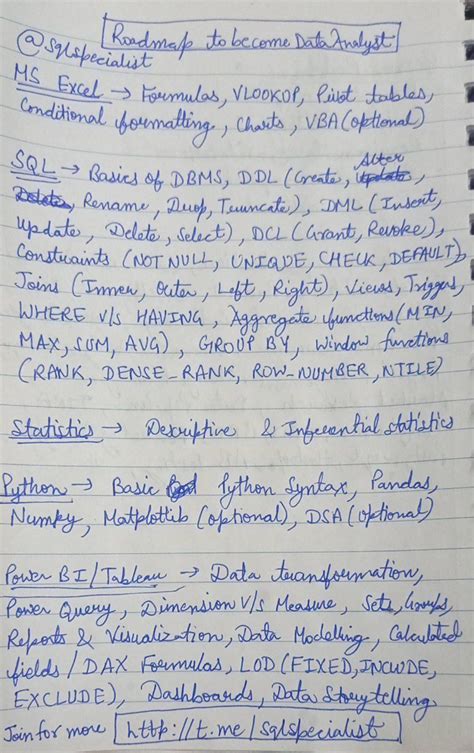 Roadmap to become Data Analyst
@sqlspecialist
MS Excel → Formulas, VLOOKUP, Pivot tables,
Conditional formatting, Charts, VBA (optional)
SQL → Basics of DBMS, DDL (Create, Alter
Rename, Drop, Truncate), DML (Insert,
Update, Delete, Select), DCL (Grant, Revoke),
Constraints (NOT NULL, UNIQUE, CHECK, DEFAULT),
Joins (Inner, Outer, Left, Right), Views, Triggers,
WHERE V/S HAVING, Aggregate functions (MIN,
MAX, SUM, AVG), GROUP BY, Window functions
(RANK, DENSE_RANK, ROW_NUMBER, NTILE)
Statistics → Descriptive & Inferential statistics
Python → Basic Python Syntax, Pandas,
Numpy, Matplotlib (optional), DSA (optional)
Power BI/Tableau → Data transformation,
Power Query, Dimension V/s Measure, Sets, Groups,
Reports & Visualization, Data Modelling, Calculated
fields / DAX Formulas, LOD (FIXED, INCLUDE,
EXCLUDE), Dashboards, Data Storytelling
Join for more http://t.me/sqlspecialist